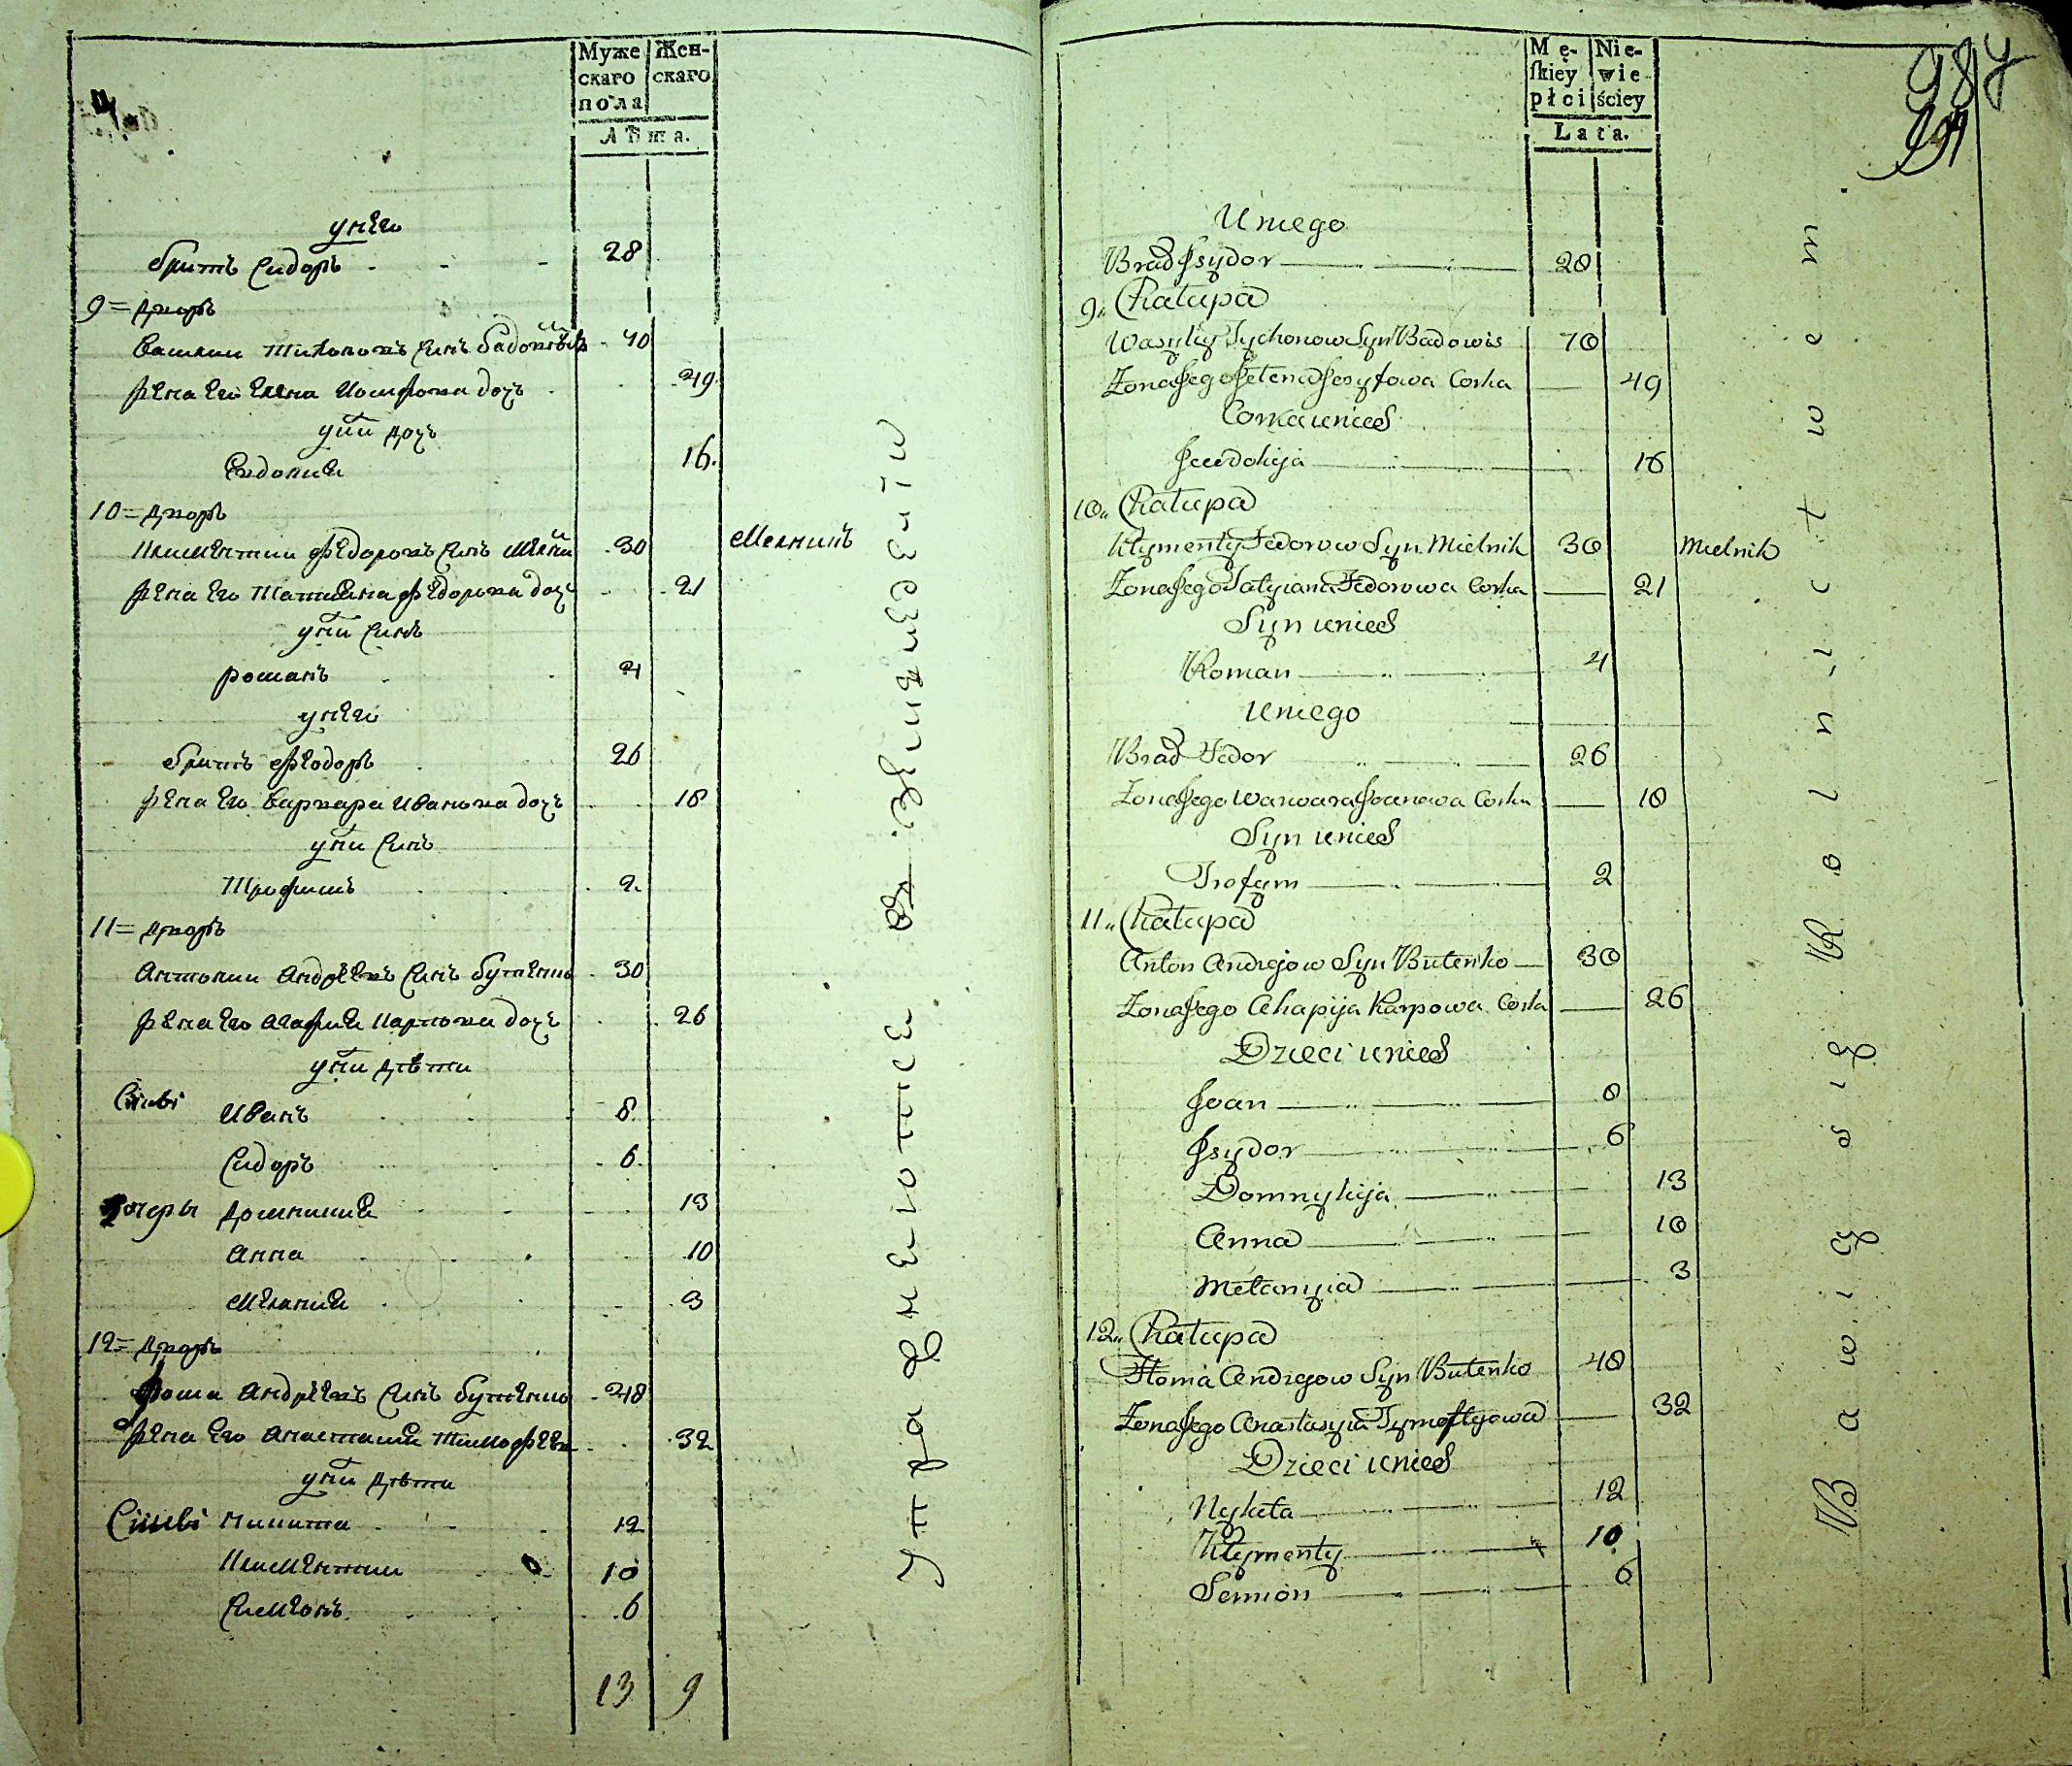 Муже Жен-
скаго скаго
пола
Лѣта.
у него
братъ Сидоръ - - - 28
9= дворъ
Василии Тихоновъ Синъ Бадовскій - 70
жена его Елена Иосифова дочь 49
у них дочь
Евдокия 16.
10= дворъ
Климентии Федоровъ Синъ Мелни 30 Мелникъ
жена его Татияна Федорова дочь 21
у них Синъ
Романъ 4
у него
братъ Феодоръ 26
жена его Варвара Иванова дочь 18
у них Синъ
Трофимъ 2.
11= дворъ
Антонии Андрѣевъ Синъ Бутенко 30
жена его Агафия Карпова дочь 26
у них дѣти
Синиві Иванъ 8.
Сидоръ 6.
дочеры Домникия 13
Анна 10
Мелания 3
12= дворъ
Фома Андрѣевъ Синъ Бутенко 48
жена его Анастасия Тимофѣева 32
у них дѣти
Синиві Никита 12
Климентии 10
Симеонъ 6
13 9
упражняются въ земледѣлзствѣ
Mę- Nie-
ſkiey wie-
płci ściey
Lata.
987
Uniego
Brad Jsydor 28
9„ Chałupa
Wasyley Tychonow Syn Badowis 70
Żona Jego Jelena Josyfowa Corka 49
Corka unich
Jewdokija 16
10„ Chałupa
Kłymenty Fedorow Syn Mielnik 30 Mielnik
Żona Jego Tatyiana Fedorowa Corka 21
Syn unich
Roman 4
Uniego
Brad Fedor 26
Żona Jego Warwara Joanowa Corka 18
Syn unich
Trofym 2
11„ Chałupa
Anton Andrejow Syn Butenko 30
Żona Jego Ahapija Karpowa Corka 26
Dzieci unich
Joan 8
Jsydor 6
Domnykija 13
Anna 10
Mełanyia 3
12„ Chałupa
Homa Andrejow Syn Butenko 48
Żona Jego Anastasyia Tymofiyowa 32
Dzieci unich
Nykita 12
Kłymenty 10
Semion 6
Bawią się Rolnictwem